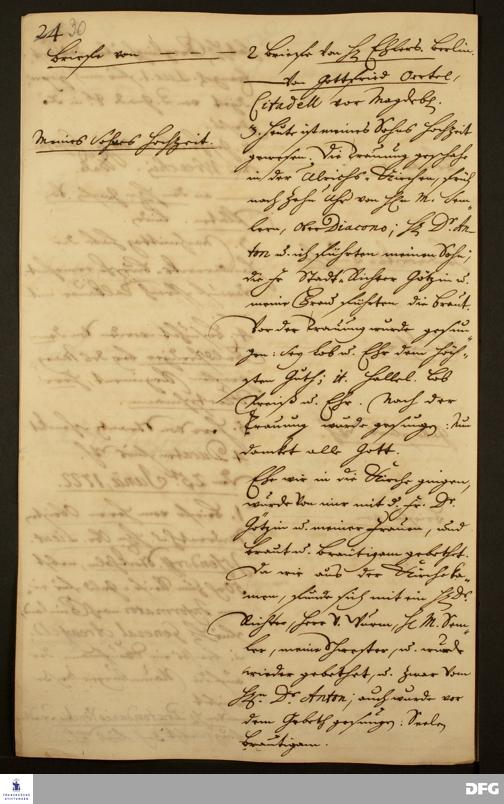 24 30
Briefe von — — — 2 Briefe von H. Ehlers. Berlin.
Von Gottfried Oertel,
Citadell vor Magdeb.
Meines Sohnes Hochzeit.
3. Heute ist meines Sohns Hochzeit
gewesen. Die Trauung geschahe
in der Ulrichs-Kirchen, früh
nach zehn Uhr von Hn. M. Sem-
lern, Ober Diacono; H. Dr. An-
ton u. ich führten meinen Sohn;
die Fr. Stadt-Richter Götzin u.
meine Frau führten die Braut.
Vor der Trauung wurde gesun-
gen: Sey Lob u. Ehr dem höch-
sten Guth; it. Hallel. Lob
Preiß u. Ehr. Nach der
Trauung wurde gesungen: Nun
danket alle Gott.
Ehe wir in die Kirche gingen,
wurde von mir mit d. Fr. Dr.
Götzin u. meiner Frauen, und
Braut u. Bräutigam gebethet.
Da wir aus der Kirche ka-
men, funde sich mit ein H. Dr.
Richter, Herr v. Wurm, H. M. Sem-
ler, meine Schwester, u. wurde
wieder gebethet, u. zwar vom
Hn. Dr. Anton; auch wurde vor
dem Gebeth gesungen: Seelen
Bräutigam.
FRANCKESCHE
STIFTUNGEN
DFG